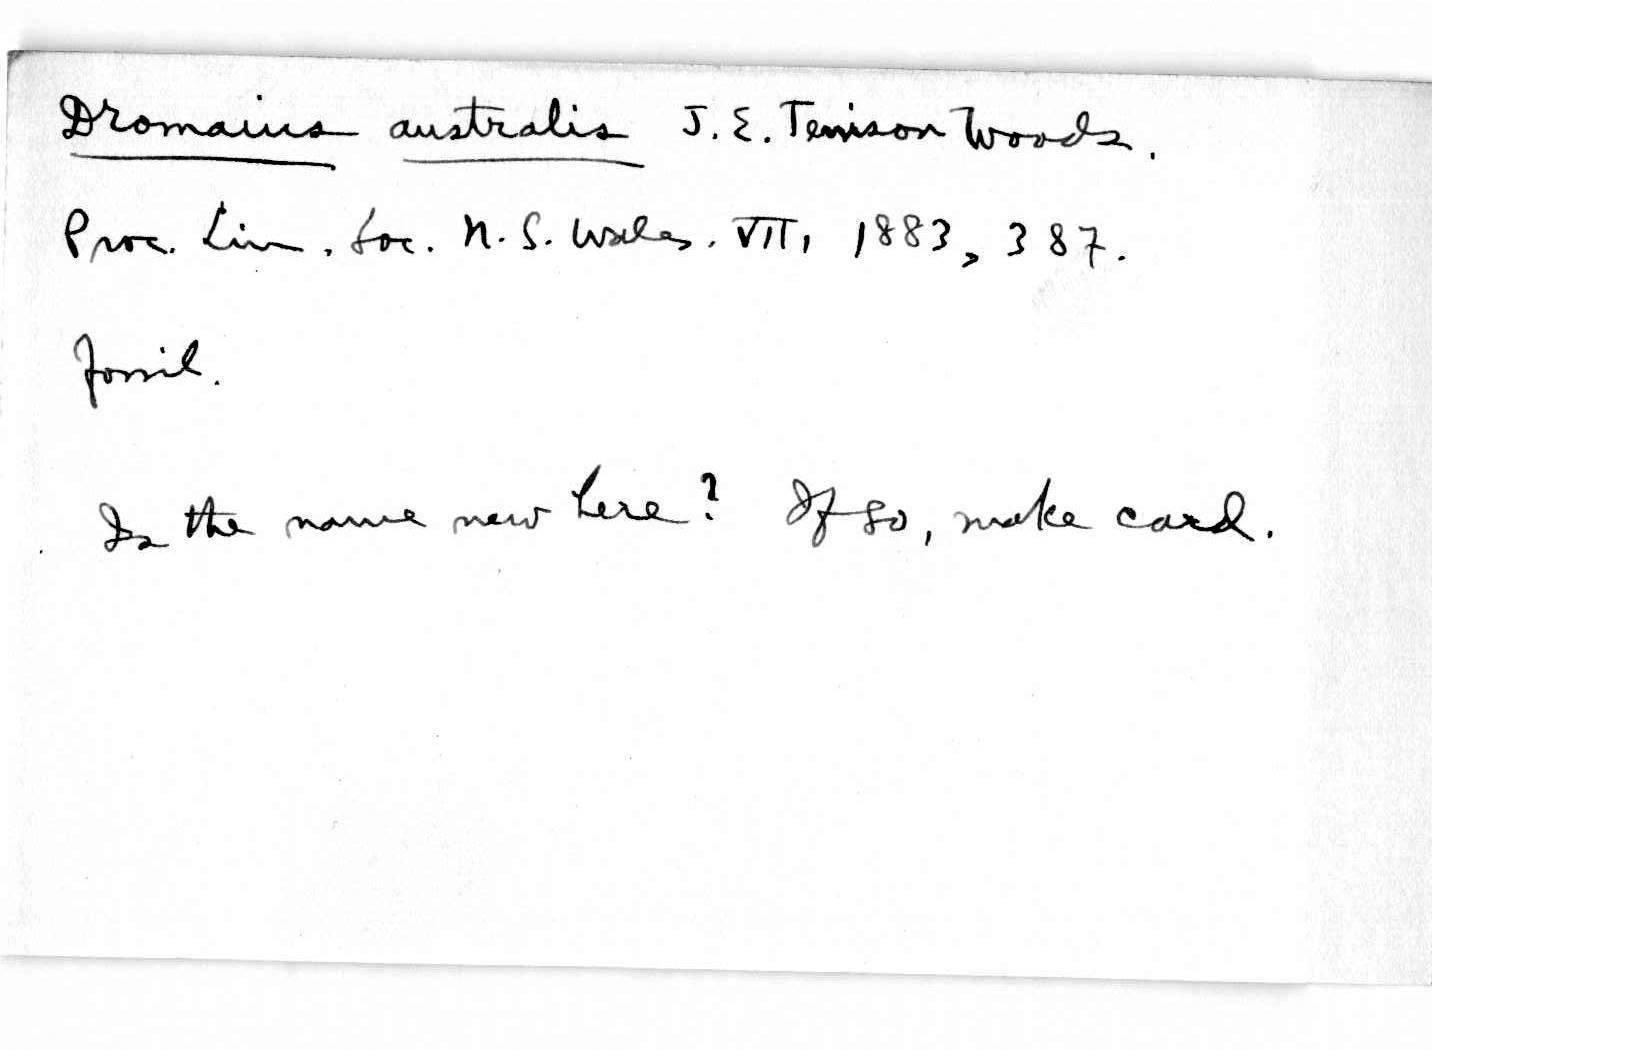 Dromaius australis J. E. Tenison Woods.
Proc. Lin. Soc. N. S. Wales. VII, 1883, 387.
fossil.
Is the name new here? If so, make card.